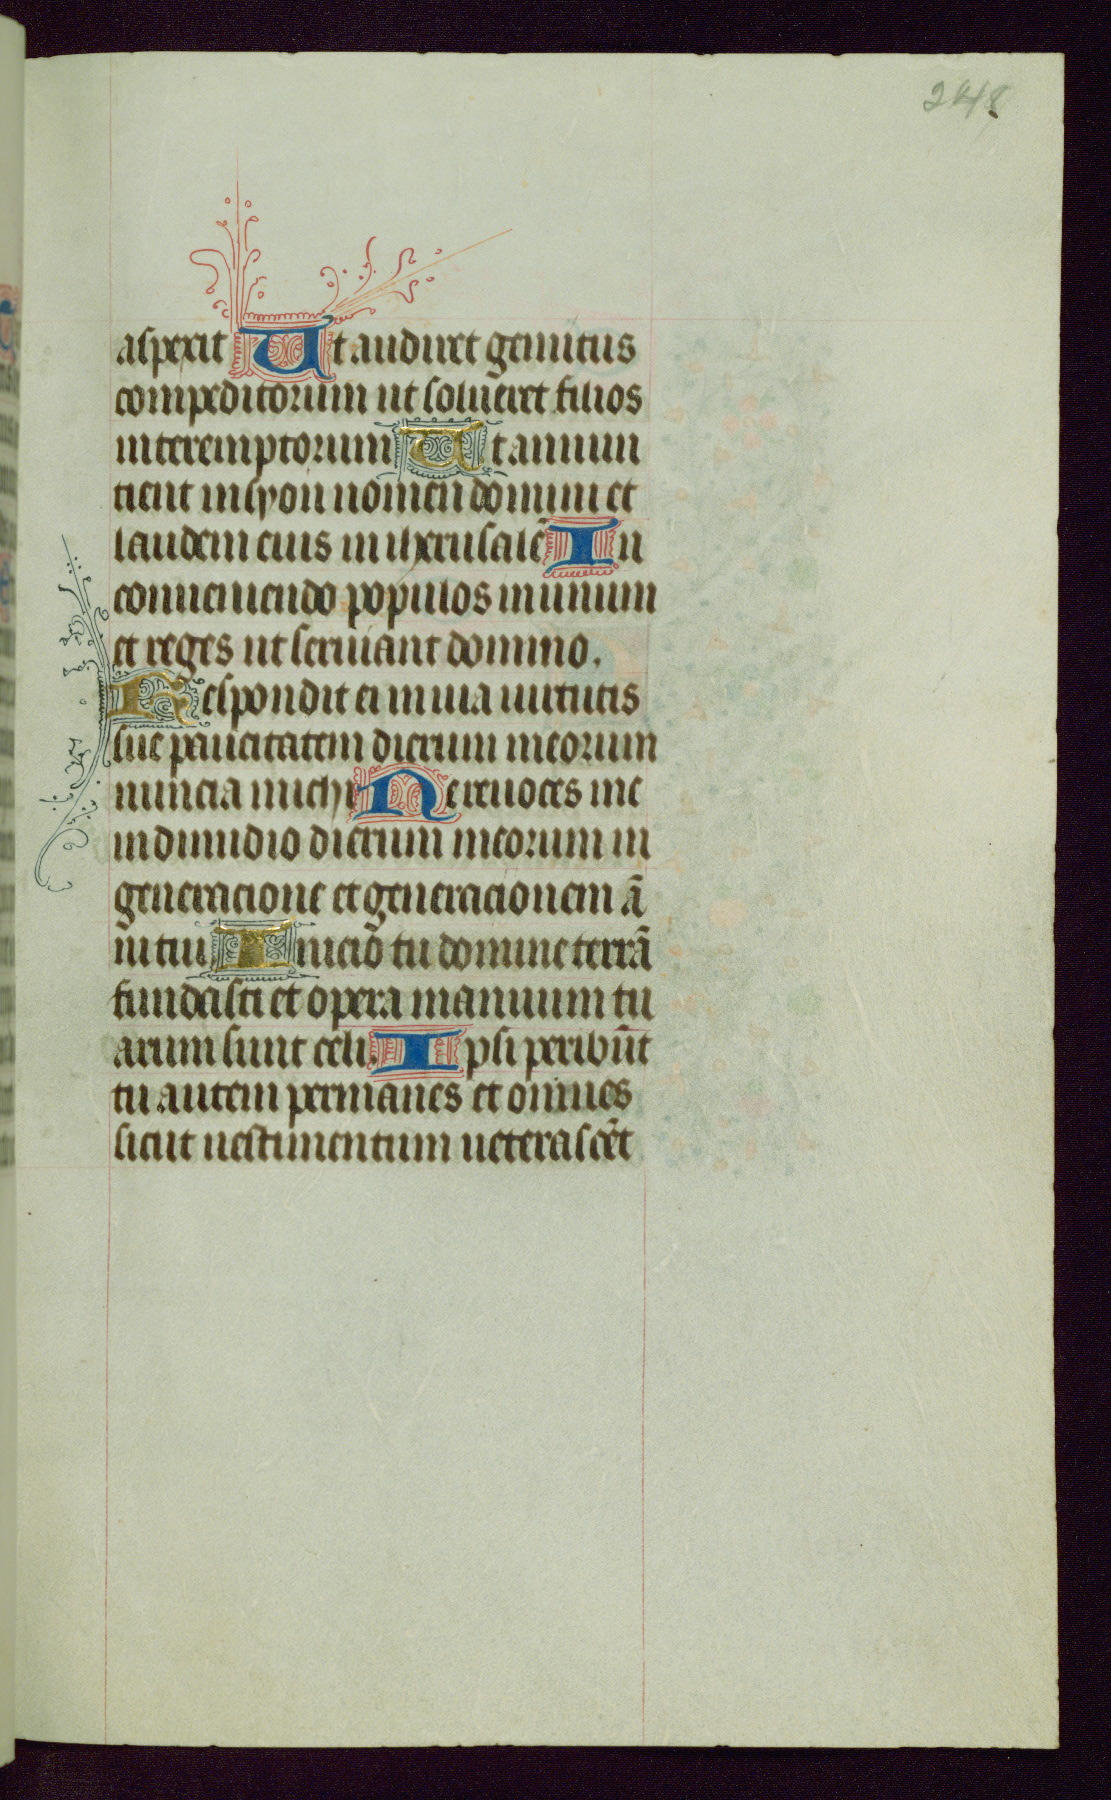 248
aspexit Ut audiret gemitus
compeditorum ut solueret filios
interemptorum Ut annun
tient in syon nomen domini et
laudem eius in iherusalē In
conueniendo populos in unum
et reges ut seruiant domino.
Respondit ei in uia uirtutis
sue paucitatem dierum meorum
nuncia michi Ne reuoces me
in dimidio dierum meorum in
generacione et generacionem ā
ni tui Inicio tu domine terrā
fundasti et opera manuum tu
arum sunt celi. Ipsi peribūt
tu autem permanes et omnes
sicut uestimentum ueterascēt